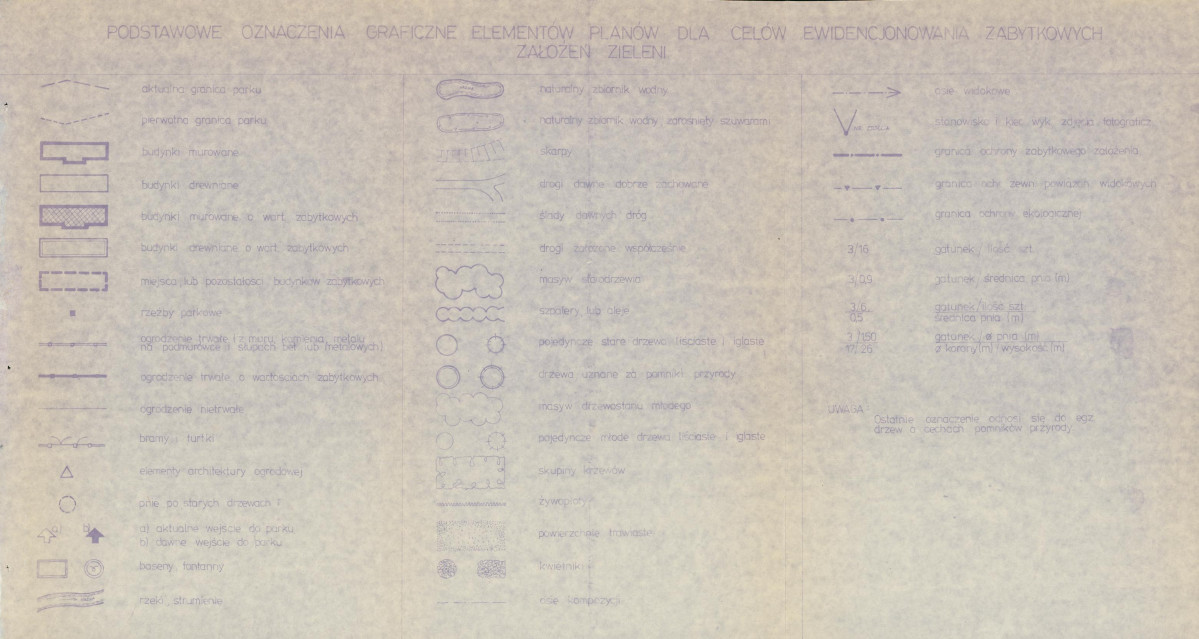 PODSTAWOWE OZNACZENIA GRAFICZNE ELEMENTÓW PLANÓW DLA CELÓW EWIDENCJONOWANIA ZABYTKOWYCH
ZAŁOŻEŃ ZIELENI
aktualna granica parku
pierwotna granica parku
budynki murowane
budynki drewniane
budynki murowane o wart. zabytkowych
budynki drewniane o wart. zabytkowych
miejsca lub pozostałości budynków zabytkowych
rzeźby parkowe
ogrodzenie trwałe z muru, kamienia, metalu
na podmurówce i słupach bet. lub metalowych)
ogrodzenie trwałe o wartościach zabytkowych
ogrodzenie nietrwałe
bramy i furtki
elementy architektury ogrodowej
pnie po starych drzewach
a) b)
a) aktualne wejście do parku
b) dawne wejście do parku
baseny, fontanny
rzeki, strumienie
naturalny zbiornik wodny
naturalny zbiornik wodny zarośnięty szuwarami
skarpy
drogi dawne dobrze zachowane
ślady dawnych dróg
drogi założone współcześnie
masyw starodrzewia
szpalery, lub aleje
pojedyncze stare drzewa liściaste i iglaste
drzewa uznane za pomniki przyrody
masyw drzewostanu młodego
pojedyncze młode drzewa liściaste i iglaste
skupiny krzewów
żywopłoty
powierzchnie trawiaste
kwietniki
osie kompozycji
osie widokowe
stanowisko i kier. wyk. zdjęcia fotograficz.
granica ochrony zabytkowego założenia
granica ochr. zewn. powiązań widokowych
granica ochrony ekologicznej
3/16 gatunek / ilość szt.
3/0.9 gatunek średnica pnia (m)
3/6 gatunek/ilość szt.
0.5 średnica pnia (m)
gatunek ø pnia (m)
ø korony(m) wysokość(m)
UWAGA
Ostatnie oznaczenie odnosi się do egz.
drzew o cechach pomników przyrody